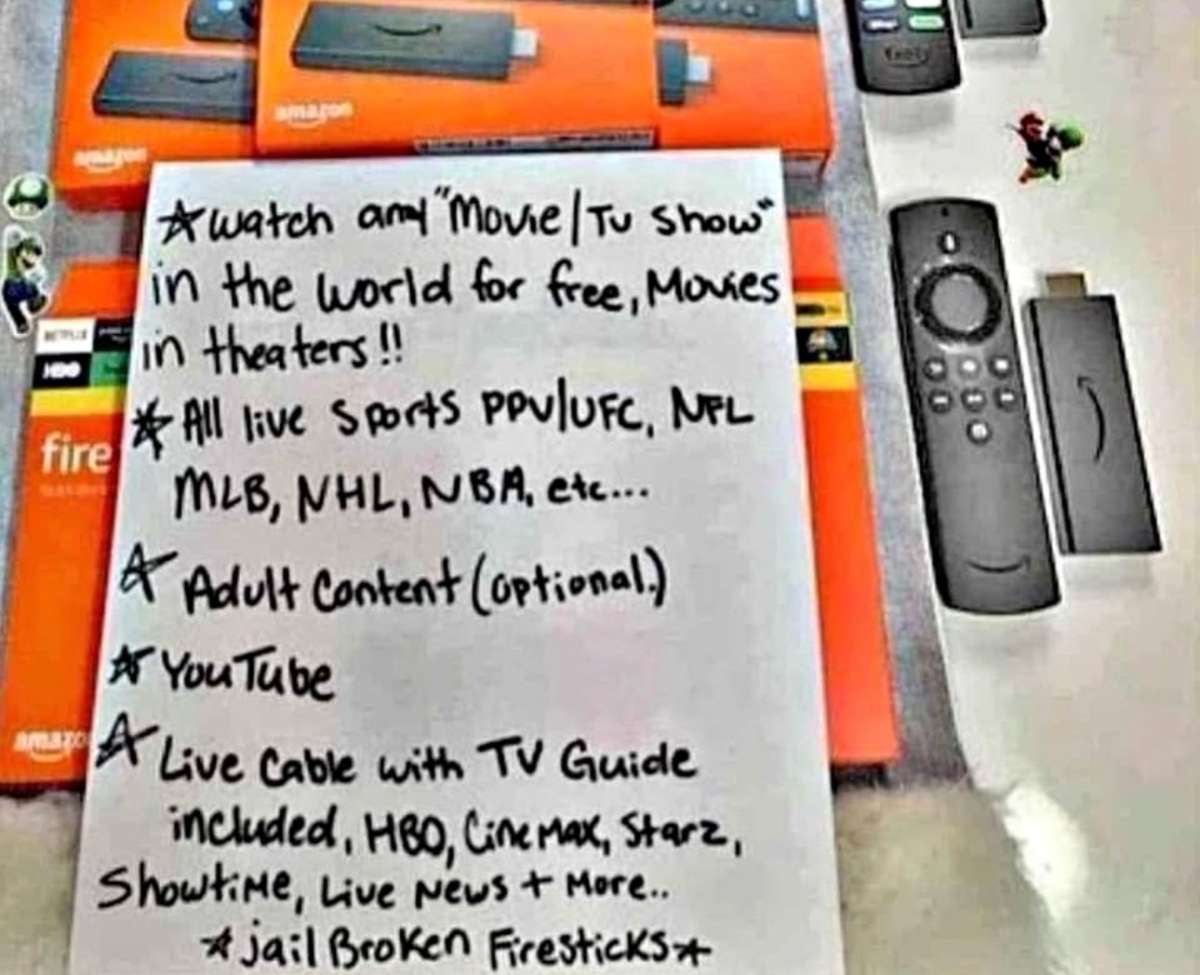 amazon
amazon
☆ Watch any "Movie/TV Show"
in the world for free, Movies
in theaters!!
☆ All live Sports PPV/UFC, NFL
MLB, NHL, NBA, etc...
☆ Adult Content (optional.)
☆ YouTube
☆ Live Cable with TV Guide
included, HBO, CineMax, Starz,
Showtime, Live News + More..
☆ jailBroken Firesticks ☆
NETFLIX
HBO
fire
amazo